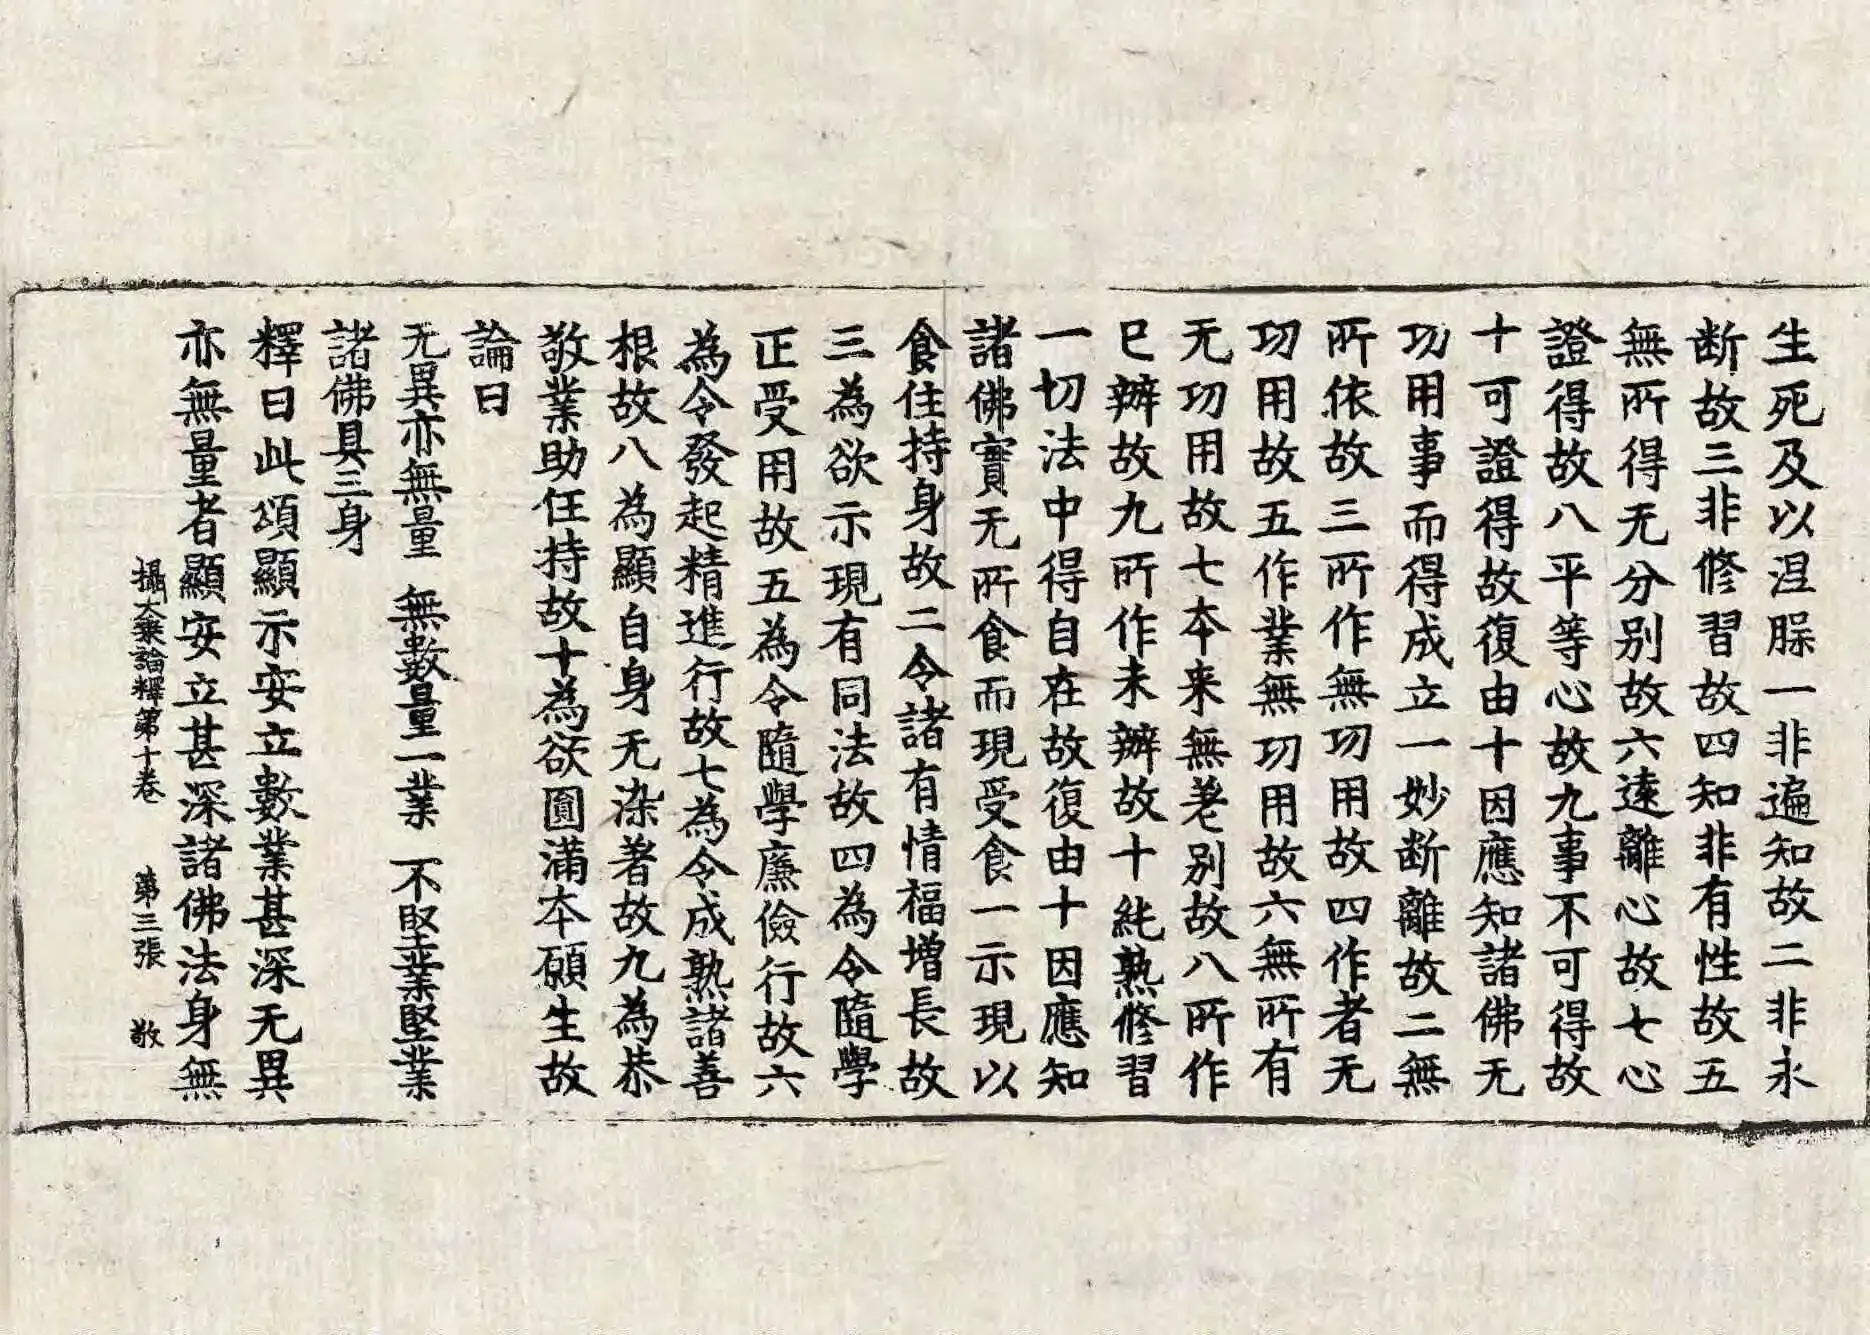 生死及以涅脲一非遍知故二非永
断故三非修習故四知非有性故五
無所得无分別故六遠離心故七心
證得故八平等心故九事不可得故
十可證得故復由十因應知諸佛无
功用事而得成立一妙断離故二無
所依故三所作無功用故四作者无
功用故五作業無功用故六無所有
无功用故七本来無差別故八所作
已辦故九所作未辦故十純熟修習
一切法中得自在故復由十因應知
諸佛實无所食而現受食一示現以
食住持身故二令諸有情福增長故
三為欲示現有同法故四為令隨學
正受用故五為令隨學廉儉行故六
為令發起精進行故七為令成熟諸善
根故八為顯自身无染著故九為恭
敬業助任持故十為欲圓滿本願生故
論曰
无異亦無量 無數量一業 不堅業堅業
諸佛具三身
釋曰此頌顯示安立數業甚深无異
亦無量者顯安立甚深諸佛法身無
攝大乘論釋第十卷 第三張 敬